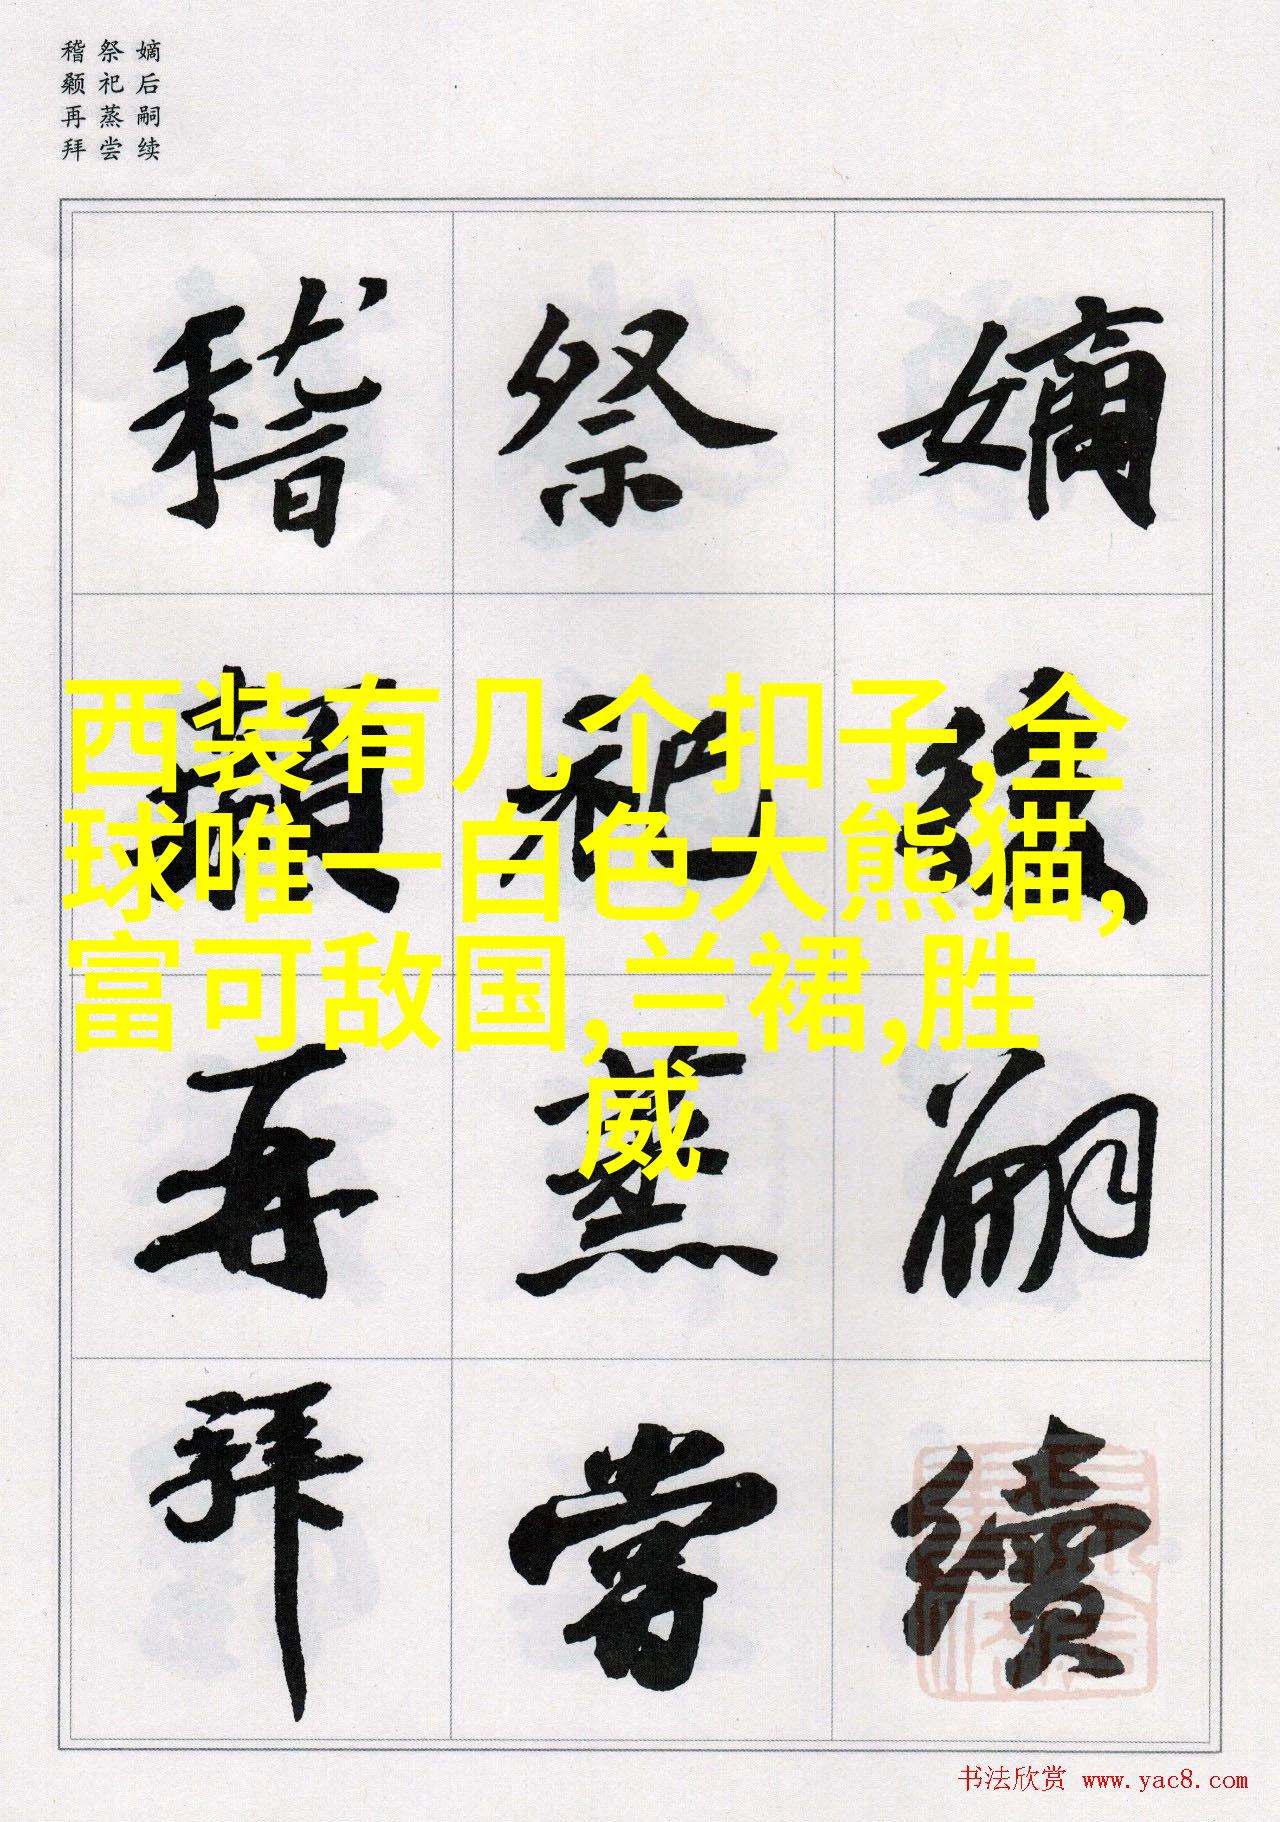 嫡后嗣续
祭祀蒸尝
稽颡再拜
嫡后嗣續
祭祀蒸嘗
稽顙再拜
西装有几个扣子,全
球唯一白色大熊猫,
富可敌国,兰裙,胜
威
书法欣赏 www.yac8.com